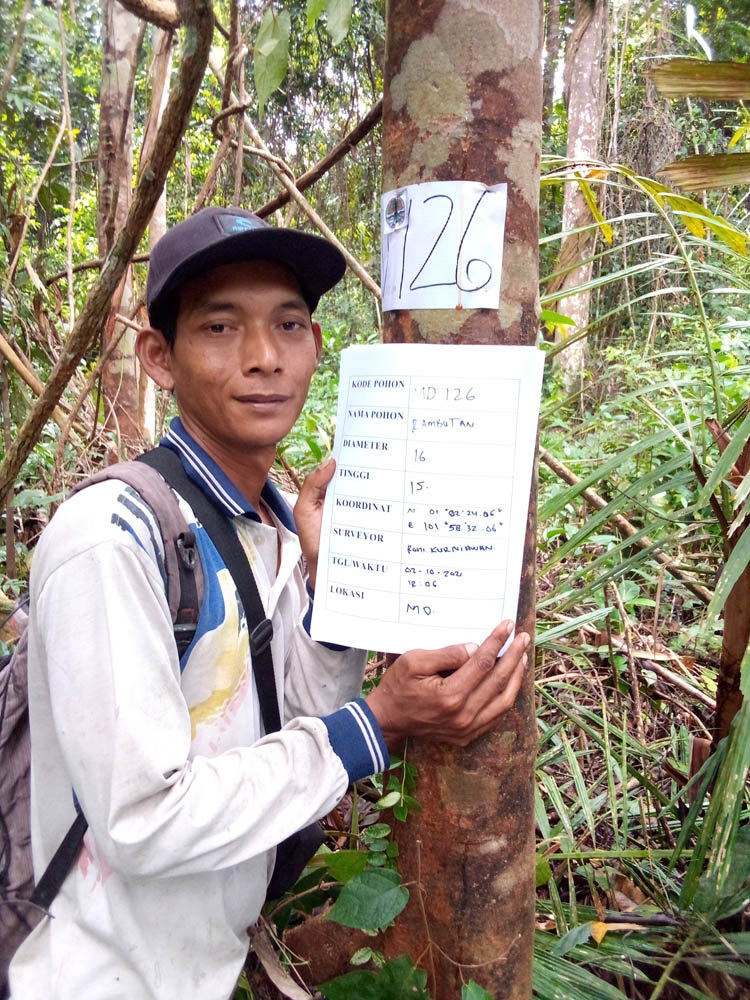 126
KODE POHON MD 126
NAMA POHON RAMBUTAN
DIAMETER 16
TINGGI 15.
KOORDINAT N 01 °02'24.06"
E 101 °58'32.06"
SURVEYOR RONI KURNIAWAN
TGL/WAKTU 02-10-2021
12:06
LOKASI MD.